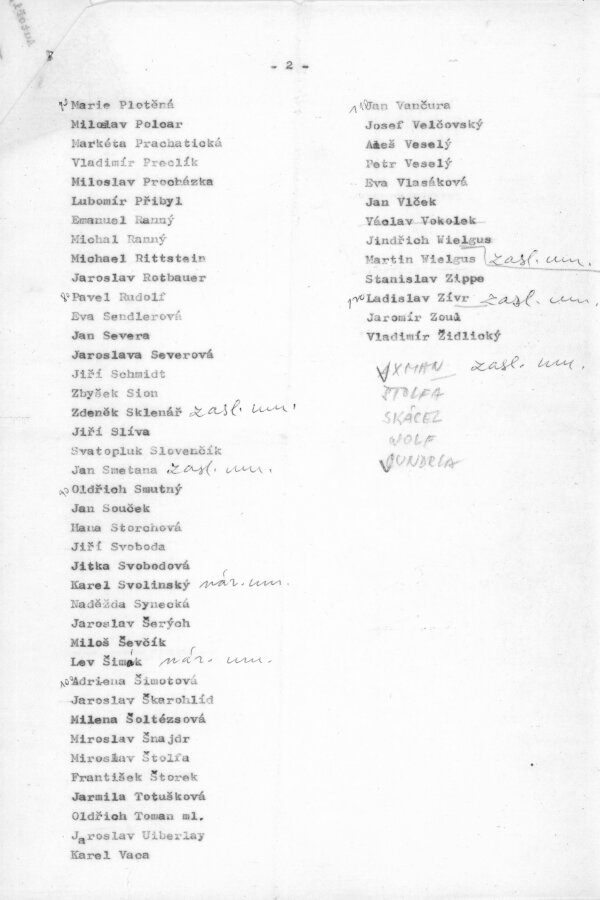 - 2 -
70 Marie Plotěná
Miloslav Polcar
Markéta Prachatická
Vladimír Preclík
Miloslav Procházka
Lubomír Přibyl
Emanuel Ranný
Michal Ranný
Michael Rittstein
Jaroslav Rotbauer
80 Pavel Rudolf
Eva Sendlerová
Jan Severa
Jaroslava Severová
Jiří Schmidt
Zbyšek Sion
Zdeněk Sklenář zasl. um.
Jiří Slíva
Svatopluk Slovenčík
Jan Smetana zasl. um.
90 Oldřich Smutný
Jan Souček
Hana Storchová
Jiří Svoboda
Jitka Svobodová
Karel Svolinský nár. um.
Naděžda Synecká
Jaroslav Šerých
Miloš Ševčík
Lev Šimák nár. um.
100 Adriena Šimotová
Jaroslav Škarohlíd
Milena Šoltézsová
Miroslav Šnajdr
Miroslav Štolfa
František Štorek
Jarmila Totušková
Oldřich Toman ml.
Jaroslav Uiberlay
Karel Vaca
110 Jan Vančura
Josef Velčovský
Aleš Veselý
Petr Veselý
Eva Vlasáková
Jan Vlček
Václav Vokolek
Jindřich Wielgus
Martin Wielgus zasl. um.
Stanislav Zippe
120 Ladislav Zívr zasl. um.
Jaromír Zoul
Vladimír Židlický
AXMAN zasl. um.
ŠTOLFA
SKÁCEL
WOLF